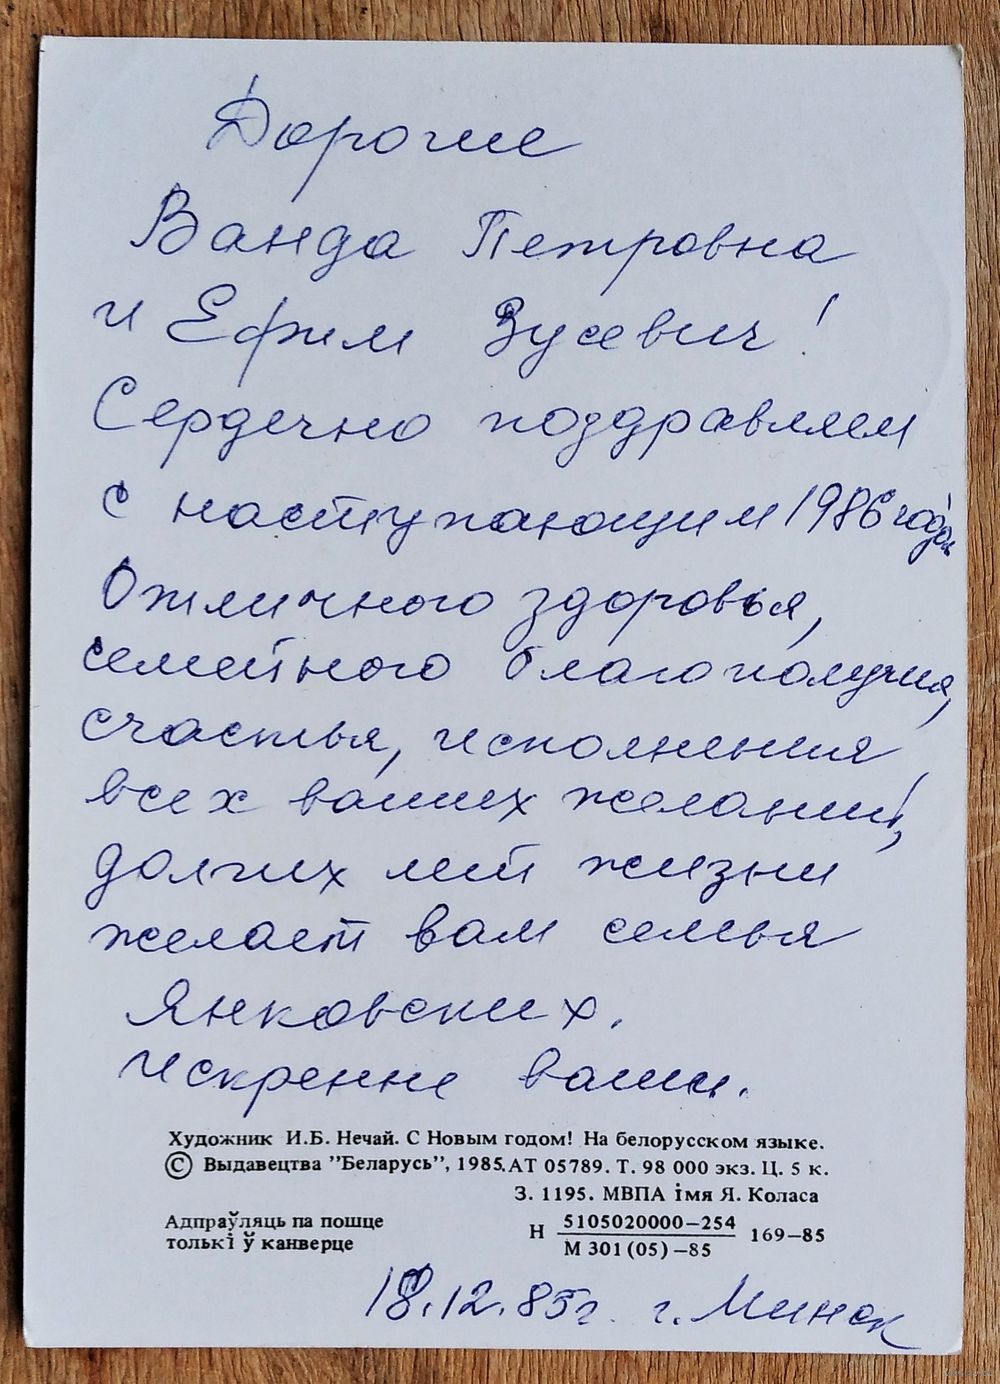 Дорогие
Ванда Петровна
и Ефим Зусевич!
Сердечно поздравляем
с наступающим 1986 годом
Отличного здоровья,
семейного благополучия,
счастья, исполнения
всех ваших желаний,
долгих лет жизни
желает вам семья
Янковских.
Искренне ваши.
Художник И.Б. Нечай. С Новым годом! На белорусском языке.
© Выдавецтва "Беларусь", 1985. АТ 05789. Т. 98 000 экз. Ц. 5 к.
З. 1195. МВПА імя Я. Коласа
Адпраўляць па пошце
толькі ў канверце
Н 5105020000-254 169-85
М 301(05)-85
18.12.85г. г. Минск